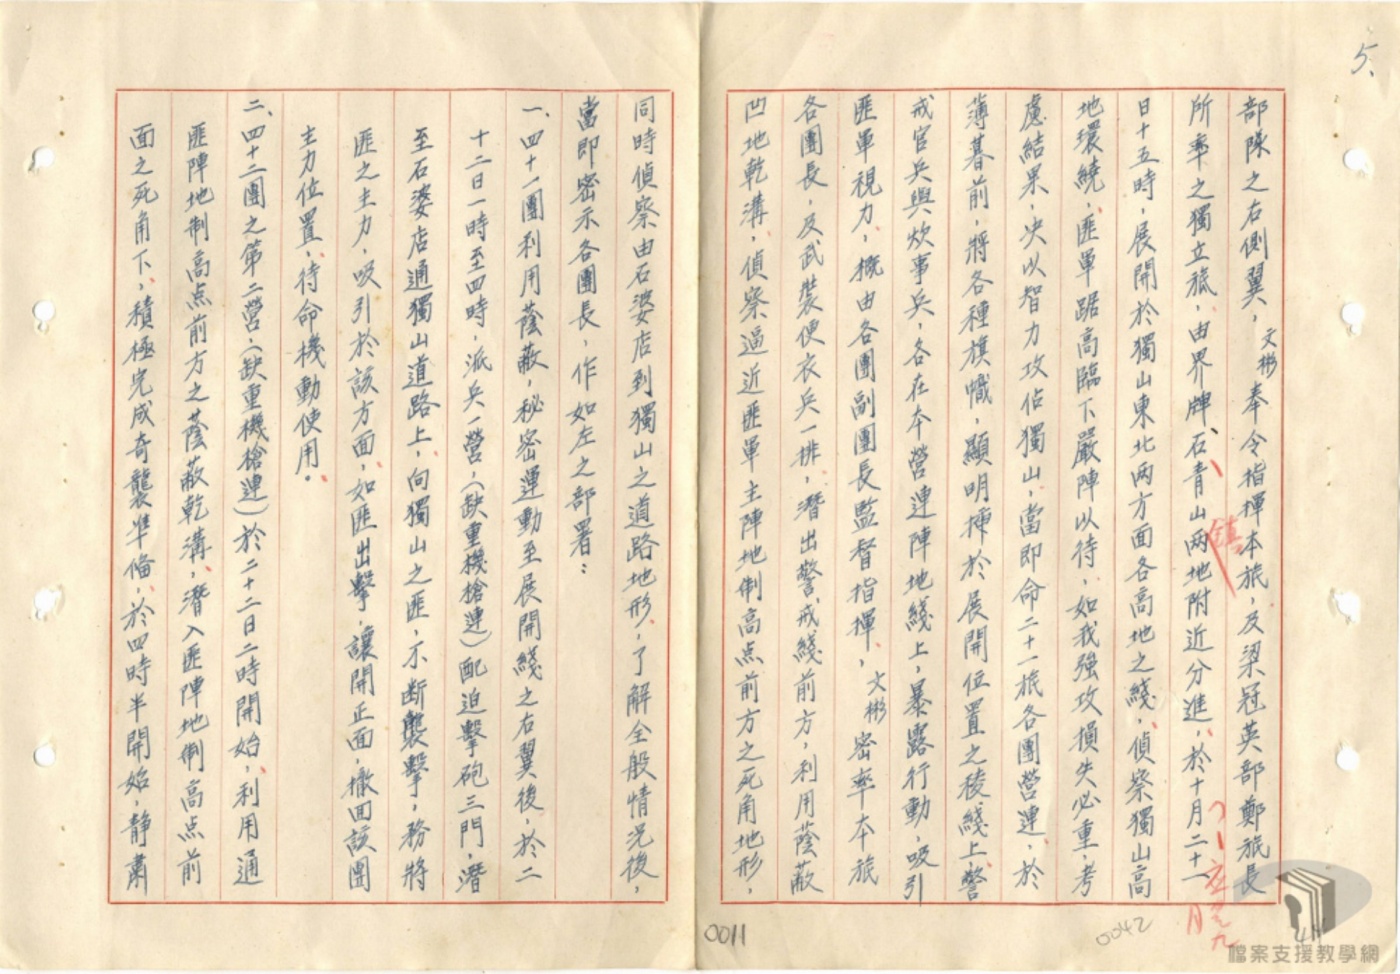 5、
部隊之右側翼，文彬奉令指揮本旅，及梁冠英部鄭旅長
所率之獨立旅，由界牌、石青山兩地附近分進，於十月二十一
鎮
日十五時，展開於獨山東北兩方面各高地之綫，偵察獨山高
地環繞，匪軍踞高臨下嚴陣以待，如我強攻損失必重，考
慮結果，決以智力攻佔獨山，當即命二十一旅各團營連，於
薄暮前，將各種旗幟，顯明揷於展開位置之稜綫上，警
戒官兵與炊事兵，各在本營連陣地綫上，暴露行動，吸引
匪軍視力，概由各團副團長監督指揮，文彬密率本旅
各團長，及武裝便衣兵一排，潛出警戒綫前方，利用蔭蔽
凹地乾溝，偵察逼近匪軍主陣地制高点前方之死角地形，
同時偵察由石婆店到獨山之道路地形，了解全般情況後，
當即密示各團長，作如左之部署：
一、四十一團利用蔭蔽，秘密運動至展開綫之右翼後，於二
十二日一時至四時，派兵一營，（缺重機槍連）配迫擊砲三門，潛
至石婆店通獨山道路上，向獨山之匪，不断襲擊，務將
匪之主力，吸引於該方面，如匪出擊，讓開正面，撤回該團
主力位置，待命機動使用。
二、四十二團之第二營，（缺重機槍連）於二十二日二時開始，利用通
匪陣地制高点前方之蔭蔽乾溝，潛入匪陣地制高点前
面之死角下，積極完成奇襲準偹，於四時半開始，静肅
0011
0042
檔案支援教學網